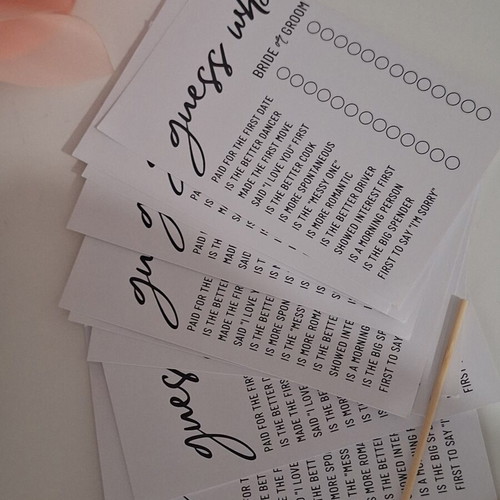 guess who
BRIDE or GROOM
PAID FOR THE FIRST DATE
IS THE BETTER DANCER
MADE THE FIRST MOVE
SAID "I LOVE YOU" FIRST
IS THE BETTER COOK
IS MORE SPONTANEOUS
IS THE "MESSY ONE"
IS MORE ROMANTIC
IS THE BETTER DRIVER
SHOWED INTEREST FIRST
IS A MORNING PERSON
IS THE BIG SPENDER
FIRST TO SAY "I'M SORRY"
g
PA
IS
PAID
IS TH
MADI
SAID
IS T
gu
PAID FOR THE
IS THE BETTE
MADE THE FIR
SAID "I LOVE Y
IS THE BETTE
IS MORE SPON
IS THE "MESS
IS MORE ROMA
IS THE BETTE
SHOWED INTE
IS A MORNING
IS THE BIG SP
FIRST TO SAY
gues
PAID FOR THE FI
IS THE BETTER
MADE THE FIRS
SAID "I LOVE
IS THE BETT
IS MOR
FIRS
IS THE BETT
IS MORE SPO
IS THE "MESS
IS MORE ROMA
IS THE BETTE
SHOWED INTER
IS A MO
IS THE BIG SPE
FIRST TO SAY "I'